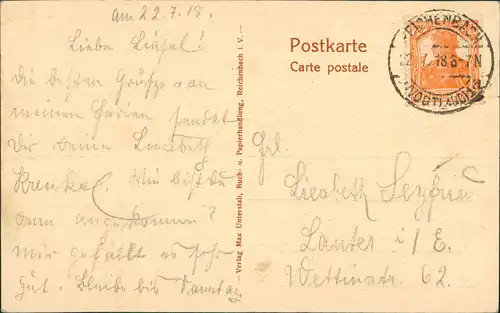 am 22.7.18.
Liebe Liesel!
Die besten Grüße von
meinen Ferien sendet
Dir Deine Lisabeth
Krenkel. Wie bist du
denn angekommen?
mir gefällt es sehr
gut. Bleibe bis Sonntag.
– Verlag Max Unterstab, Buch- u. Papierhandlung, Reichenbach i. V. –
Postkarte
Carte postale
REICHENBACH
22.7.18.8-7N
(VOGTL.)
Frl.
Liesbeth
Lauter i/E.
Wettinstr. 62.